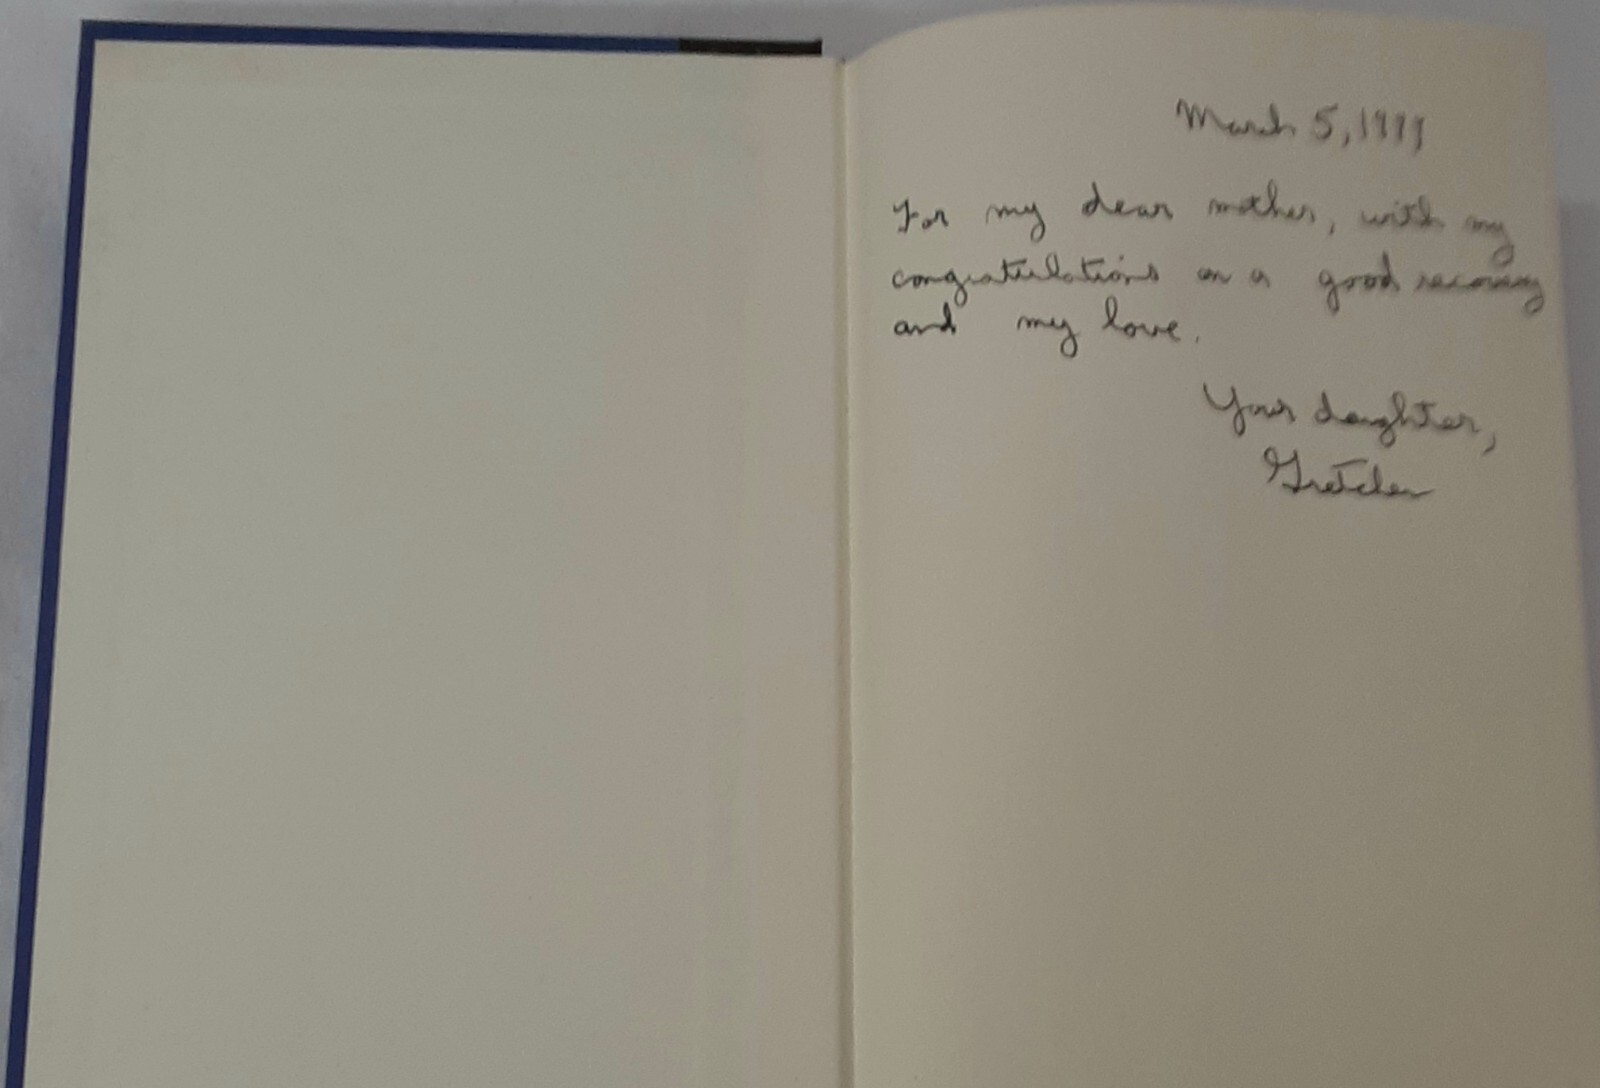 March 5, 1999
For my dear mother, with my
congratulations on a good recovery
and my love.
Your daughter,
Gretchen